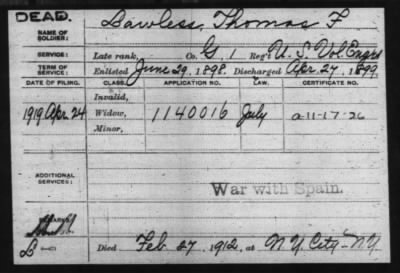 DEAD.
NAME OF SOLDIER: Lawless, Thomas F
SERVICE: Late rank, Co. G 1 Reg't U. S. Vol. Engrs
TERM OF SERVICE: Enlisted June 29, 1898. Discharged Apr. 27, 1899.
DATE OF FILING. CLASS. APPLICATION NO. LAW. CERTIFICATE NO.
Invalid,
1919 Apr. 24 Widow, 1140016 July a-11-17-26
Minor,
ADDITIONAL SERVICES:
War with Spain.
REMARKS:
Died Feb 27, 1912, at N.Y. City - N.Y.